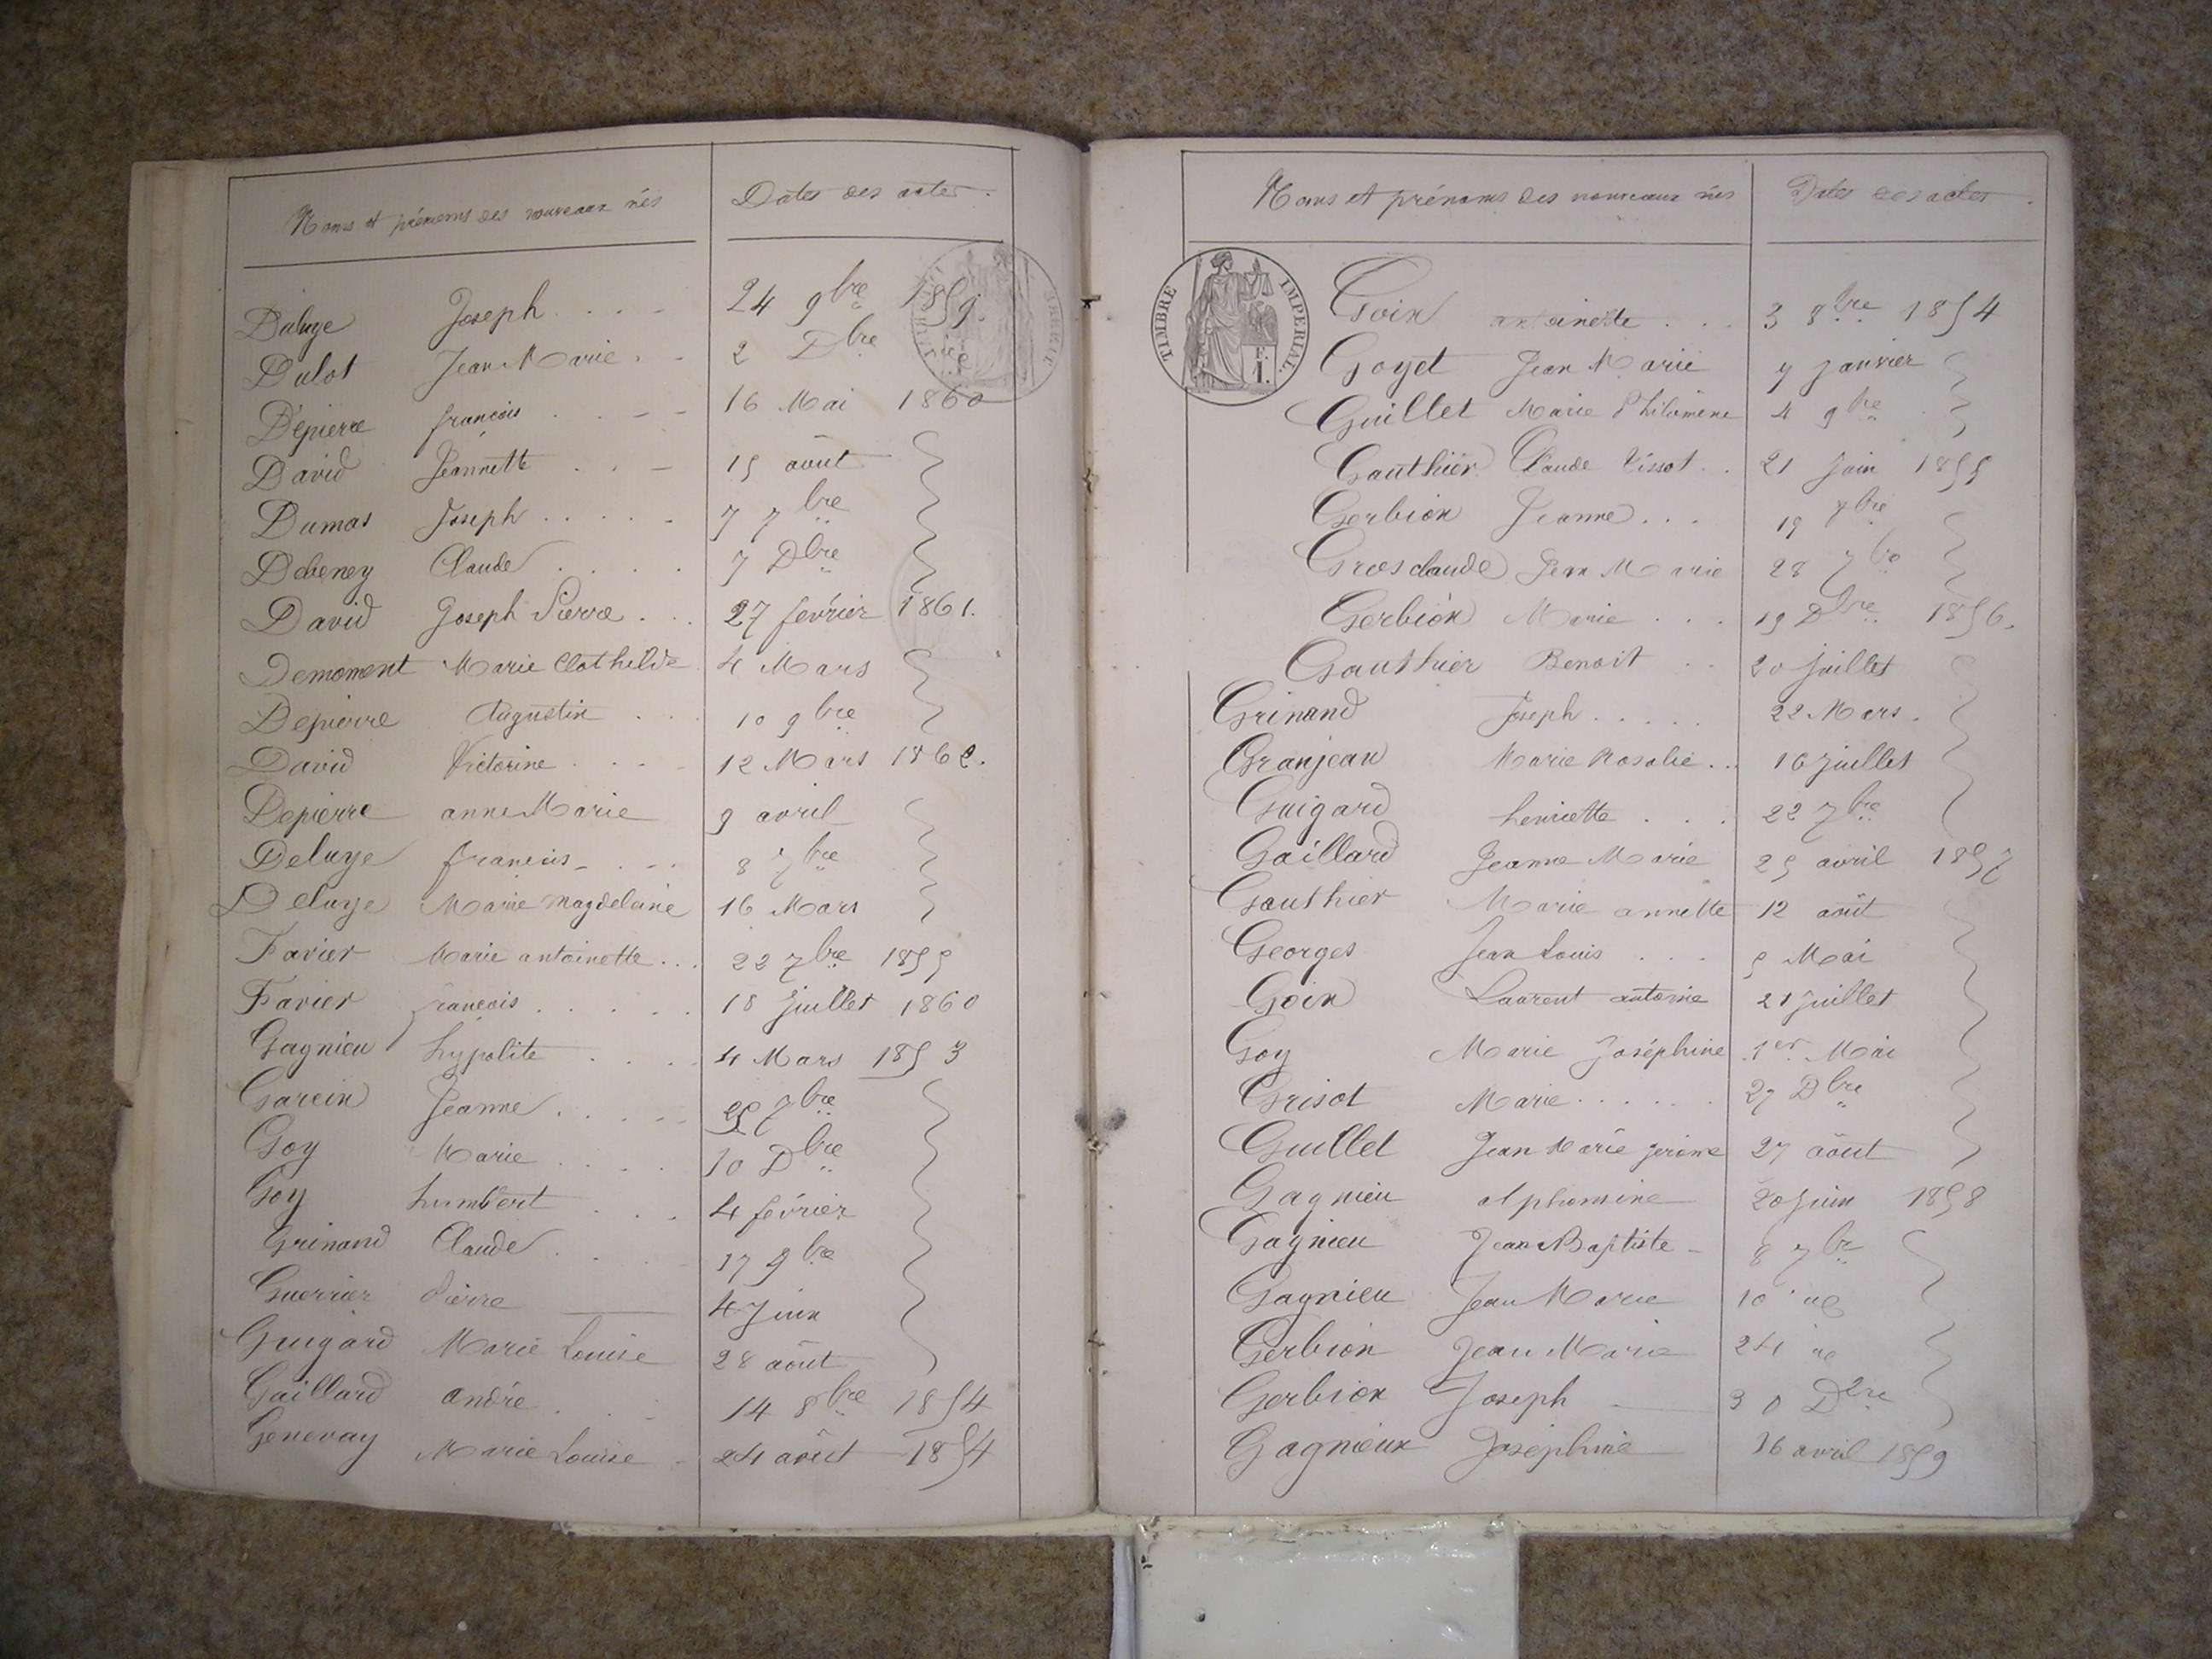 Noms et prénoms des nouveaux nés Dates des actes.
Joseph 24 9bre 1859.
Dulot Jean Marie 2 Dbre
Dépierre francois 16 Mai 1860
David Jeannette 15 août
Dumas Joseph 7 7bre
Debeney Claude 7 Dbre
David Joseph Pierre 27 février 1861.
Demoment Marie Clothilde 4 Mars
Depierre Augustin 10 9bre
David Victorine 12 Mars 1862.
Depierre anne Marie 9 avril
Deluye francois 8 7bre
Deluye Marie Magdeleine 16 Mars
Favier Marie antoinette 22 7bre 1855
Favier françois 18 Juillet 1860
Gagnieu hypolite 4 Mars 1853
Garcin Jeanne 7bre
Goy Marie 10 Dbre
Goy humbert 4 février
Grinand Claude 17 9bre
Guerrier Pierre 4 Juin
Guigard Marie Louise 28 août
Gaillard andré 14 8bre 1854
Genevay Marie Louise 24 août 1854
Noms et prénoms des nouveaux nés Dates des actes.
TIMBRE IMPERIAL.
1 F.
Goin antoinette 3 8bre 1854
Goyet Jean Marie 9 Janvier
Guillet Marie Philomène 4 9bre
Gauthier Claude 21 Juin 1855
Gerbion Jeanne 19 7bre
Grosclaude Jean Marie 28 7bre
Gerbion Marie 19 Dbre 1856.
Gauthier Benoit 20 Juillet
Grinand Joseph 22 Mars.
Granjean Marie Rosalie 16 Juillet
Guigard henriette 22 7bre
Gaillard Jeanne Marie 25 avril 1857
Gauthier Marie annette 12 août
Georges Jean Louis 5 Mai
Goin Laurent antoine 21 Juillet
Goy Marie Joséphine 1er Mai
Grisot Marie 27 Dbre
Guillet Jean Marie Jerome 27 août
Gagnieu alphonsine 20 Juin 1858
Gagnieu Jean Baptiste 8 7bre
Gagnieu Jean Marie 10
Gerbion Jean Marie 24
Gerbion Joseph 30 Dbre
Gagnieux Joséphine 16 avril 1859